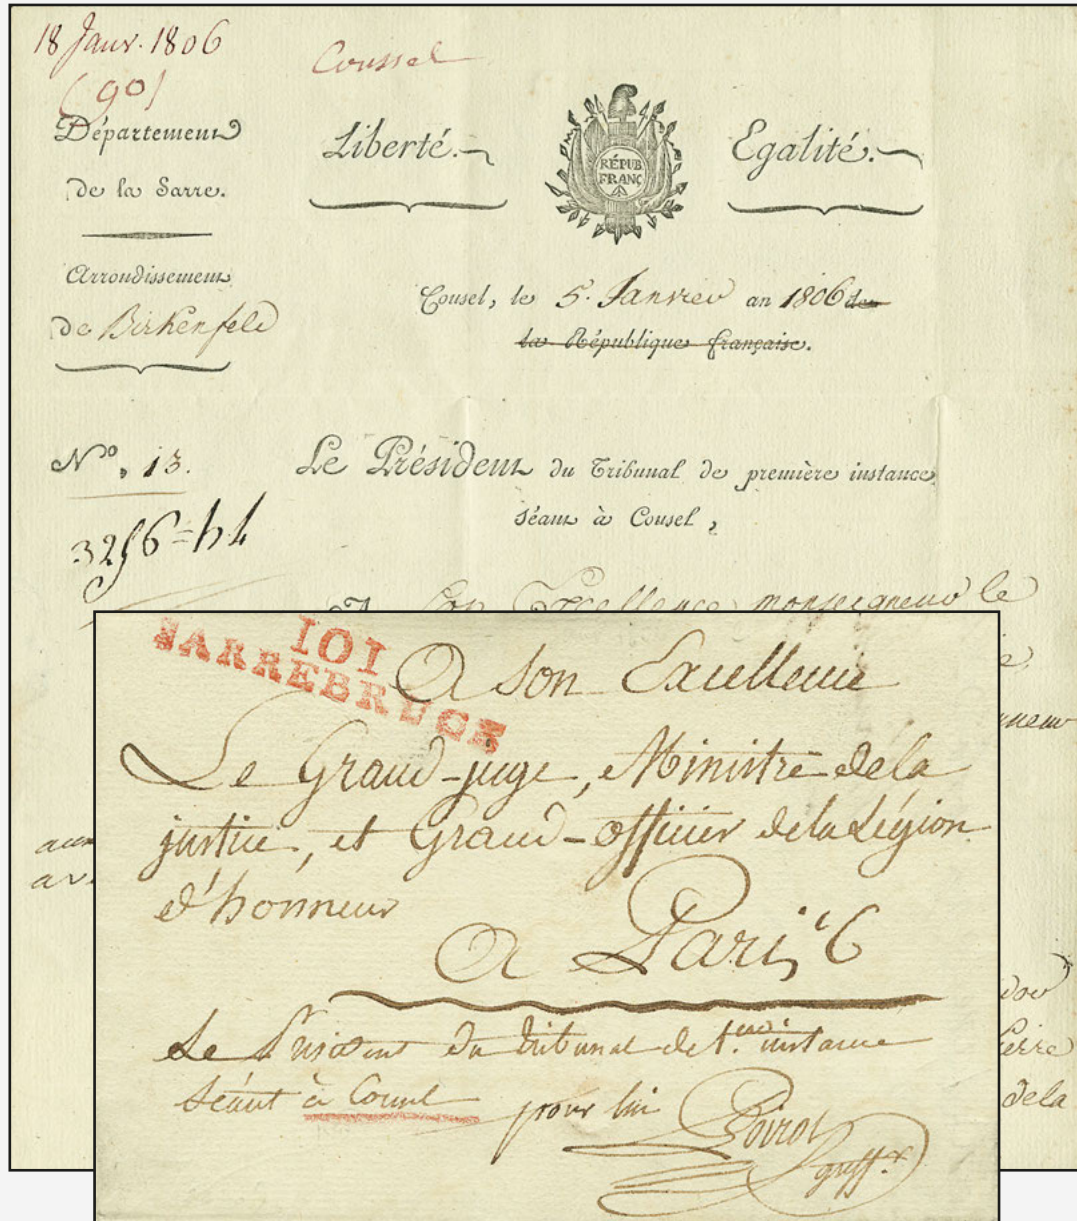 18 Janv. 1806
(90)
Coussel
Département
de la Sarre.
Liberté.
RÉPUB
FRANC
Egalité.
Arrondissement
de Birkenfeld
Cousel, le 5. Janvier an 1806 de
la République française.
N.º 13.
Le Président du Tribunal de première instance
séant à Cousel,
Son Excellence monseigneur le
101
SARREBRUCK
A Son Excellence
Le Grand-juge, Ministre de la
justice, et Grand-officier de la Légion
d'honneur
a Paris
Le Président du tribunal de 1.ere instance
Séant à Cousel pour lui Poirot
greff.r
de la